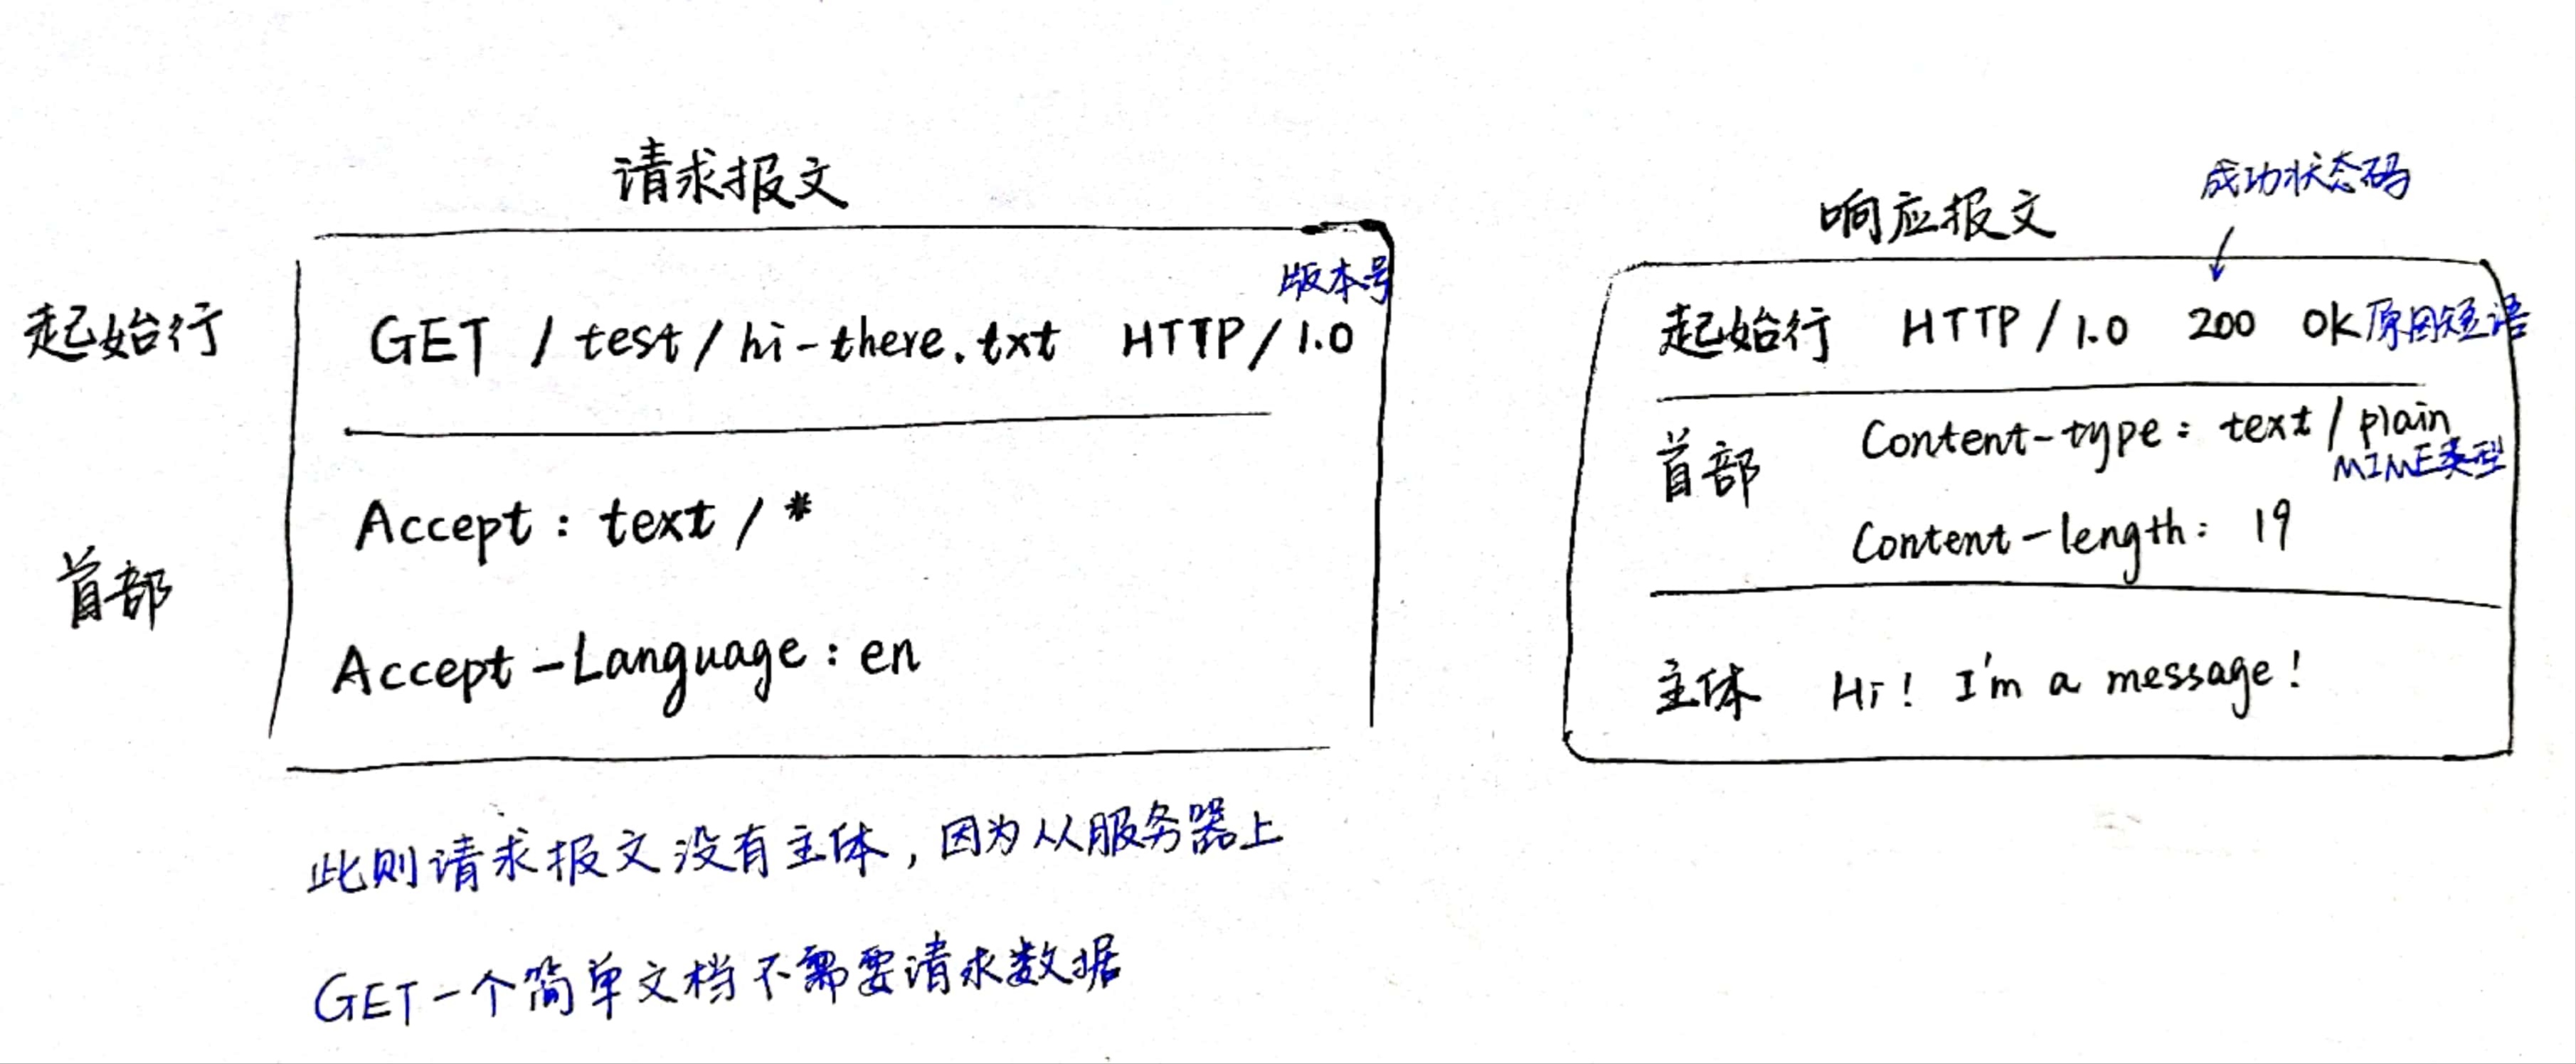 请求报文
版本号
起始行 GET /test/hi-there.txt HTTP/1.0
首部
Accept: text/*
Accept-Language: en
此则请求报文没有主体，因为从服务器上
GET一个简单文档不需要请求数据
成功状态码
响应报文
起始行 HTTP/1.0 200 OK 原因短语
首部
Content-type: text/plain
MIME类型
Content-length: 19
主体 Hi! I'm a message!